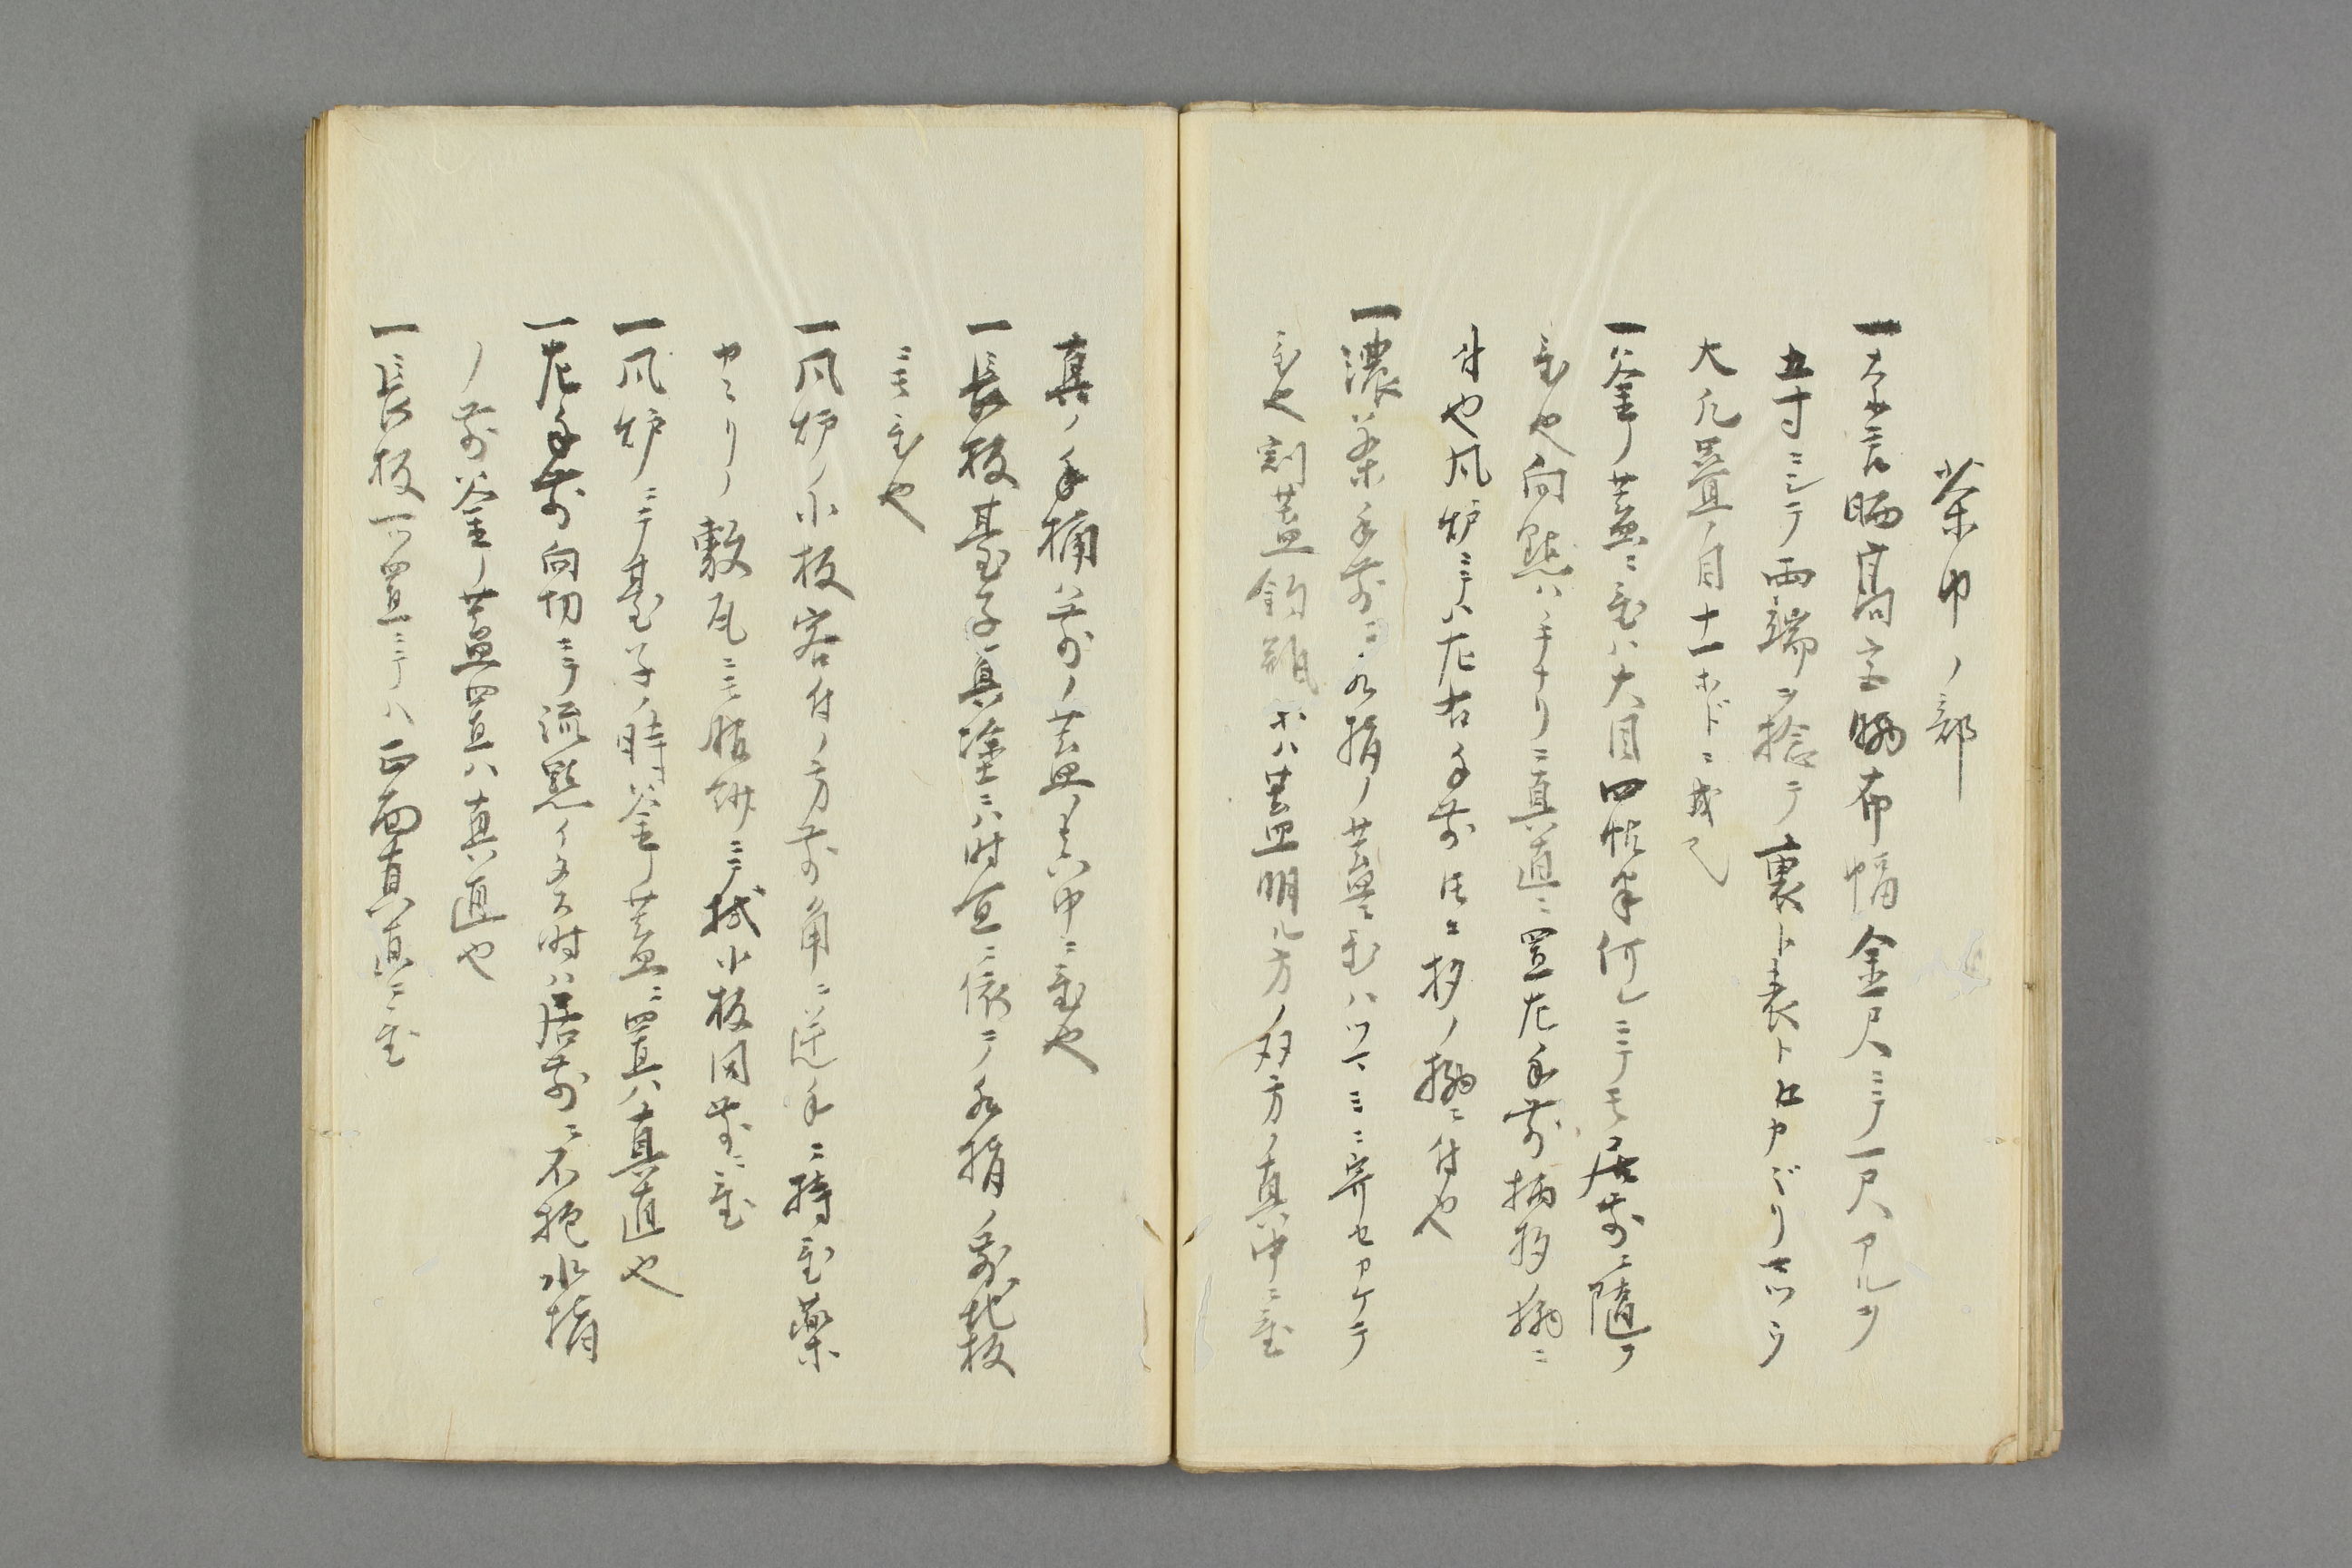 茶巾ノ部
一大 晒高宮晒布幅金尺ニテ一尺アルヲ
五寸ニシテ両端ヲ捻テ裏ト表トロカヾリスツヲ
大凡畳ノ目十一ホドニ裁
一釜ノ蓋ニ置ハ大目四帖半何レニテモ居前ニ随フ
置也向點ハ手ナリニ真直ニ置左手前柄杓ノ搦ニ
付也風炉ニテハ左右手前 杓ノ搦ニ付也
一濃茶手前ニ水指ノ蓋ニ置ハツマミニ寄セアケテ
置也割蓋釣瓶 ハ蓋明ル方ノ 方ノ真中ニ置
真ノ手桶ハ前ノ蓋ノ真中ニ置也
一長板臺子真塗ニハ時宜ニ依テ水指ノ前地板
ニモ置也
一風炉ノ小板客付ノ方前角ニ逆手ニ持置薬
ヤキリノ敷瓦ニモ 紗ニテ拭小板同前ニ置
一風炉ニテ臺子ノ時釜ノ蓋ニ置ハ真直也
一左手前向切ニテ流點イタス時ハ居前ニ不抱水指
ノ前釜ノ蓋置ハ真直也
一長板一ツ置ニテハ正面真直ニ置